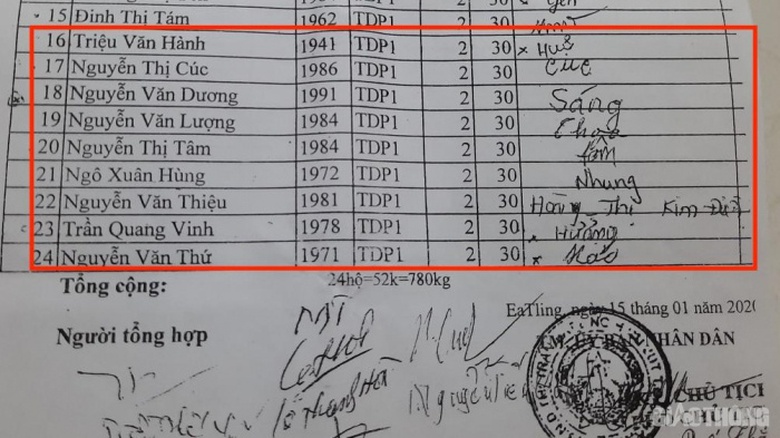 15 Đinh Thị Tám 1962 TDP1 2 30
16 Triệu Văn Hành 1941 TDP1 2 30 x Huệ
17 Nguyễn Thị Cúc 1986 TDP1 2 30 Cúc
18 Nguyễn Văn Dương 1991 TDP1 2 30 Sáng
19 Nguyễn Văn Lượng 1984 TDP1 2 30
20 Nguyễn Thị Tâm 1984 TDP1 2 30 Tâm
21 Ngô Xuân Hùng 1972 TDP1 2 30 Nhung
22 Nguyễn Văn Thiệu 1981 TDP1 2 30 Hoàng Thị Kim
23 Trần Quang Vinh 1978 TDP1 2 30 x Hưởng
24 Nguyễn Văn Thứ 1971 TDP1 2 30 x
Tổng cộng: 24hộ=52k=780kg
EaTling, ngày 15 tháng 01 năm 202
Người tổng hợp TM. ỦY BAN NHÂN DÂN
CHỦ TỊCH
GIAOTHONG